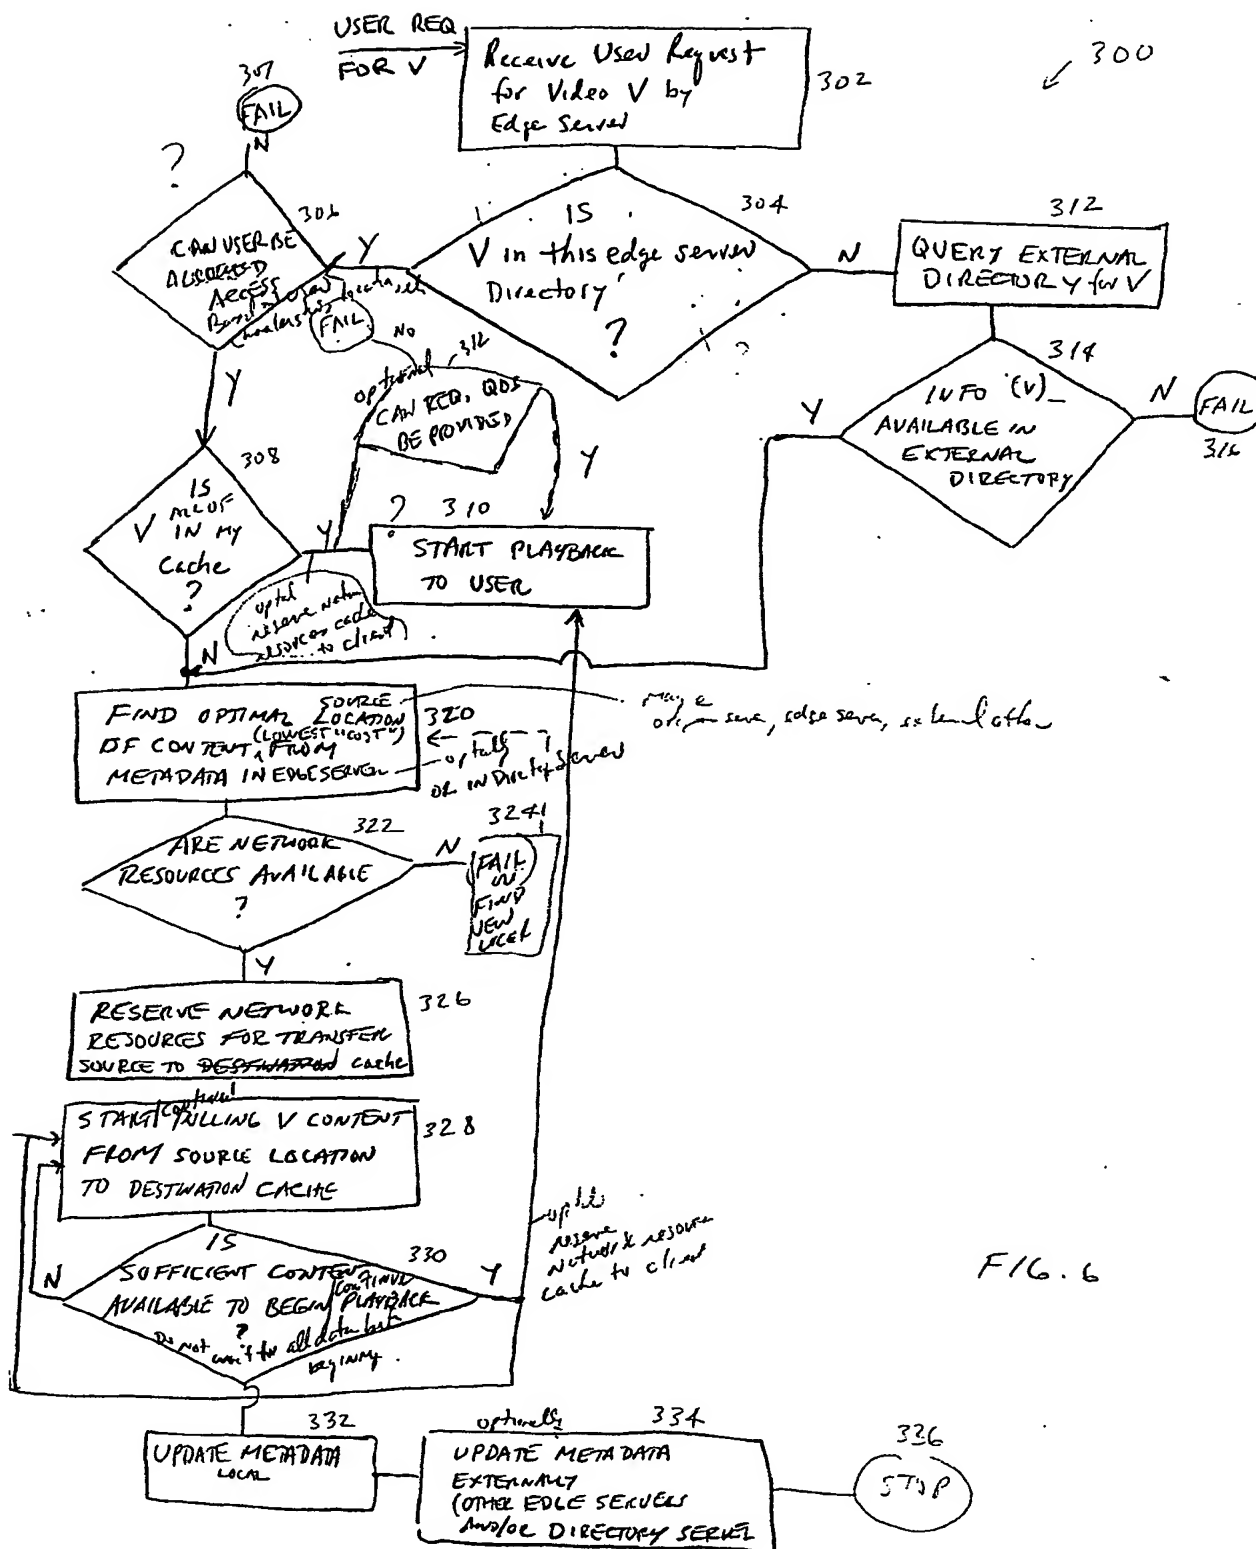 USER REQ
FOR V
Receive User Request
for Video V by
Edge Server
302
300
307
FAIL
N
?
306
CAN USER BE
ACCESS
Y
IS
V in this edge server
Directory
?
304
N
312
QUERY EXTERNAL
DIRECTORY for V
314
INFO (V)
AVAILABLE IN
EXTERNAL
DIRECTORY
Y
N
FAIL
316
FAIL
NO
optional
312
CAN REQ. QOS
BE PROVIDED
Y
Y
308
IS
ALL OF
V IN MY
Cache
?
Y
N
?
310
START PLAYBACK
TO USER
reserve
resources cache
to client
FIND OPTIMAL SOURCE LOCATION
(LOWEST "COST")
OF CONTENT, FROM
METADATA IN EDGE SERVER
320
server, edge server, external other
OR IN Directory Server
322
ARE NETWORK
RESOURCES AVAILABLE
?
N
Y
324
FAIL
OR
FIND
NEW
326
RESERVE NETWORK
RESOURCES FOR TRANSFER
SOURCE TO DESTINATION cache
328
START/continue PULLING V CONTENT
FROM SOURCE LOCATION
TO DESTINATION CACHE
330
IS
SUFFICIENT CONTENT
AVAILABLE TO BEGIN/CONTINUE PLAYBACK
?
Do not wait for all data but
beginning.
N
Y
reserve
Network resource
cache to client
FIG. 6
332
UPDATE METADATA
LOCAL
optionally
334
UPDATE METADATA
EXTERNALLY
(OTHER EDGE SERVERS
AND/OR DIRECTORY SERVER
336
STOP